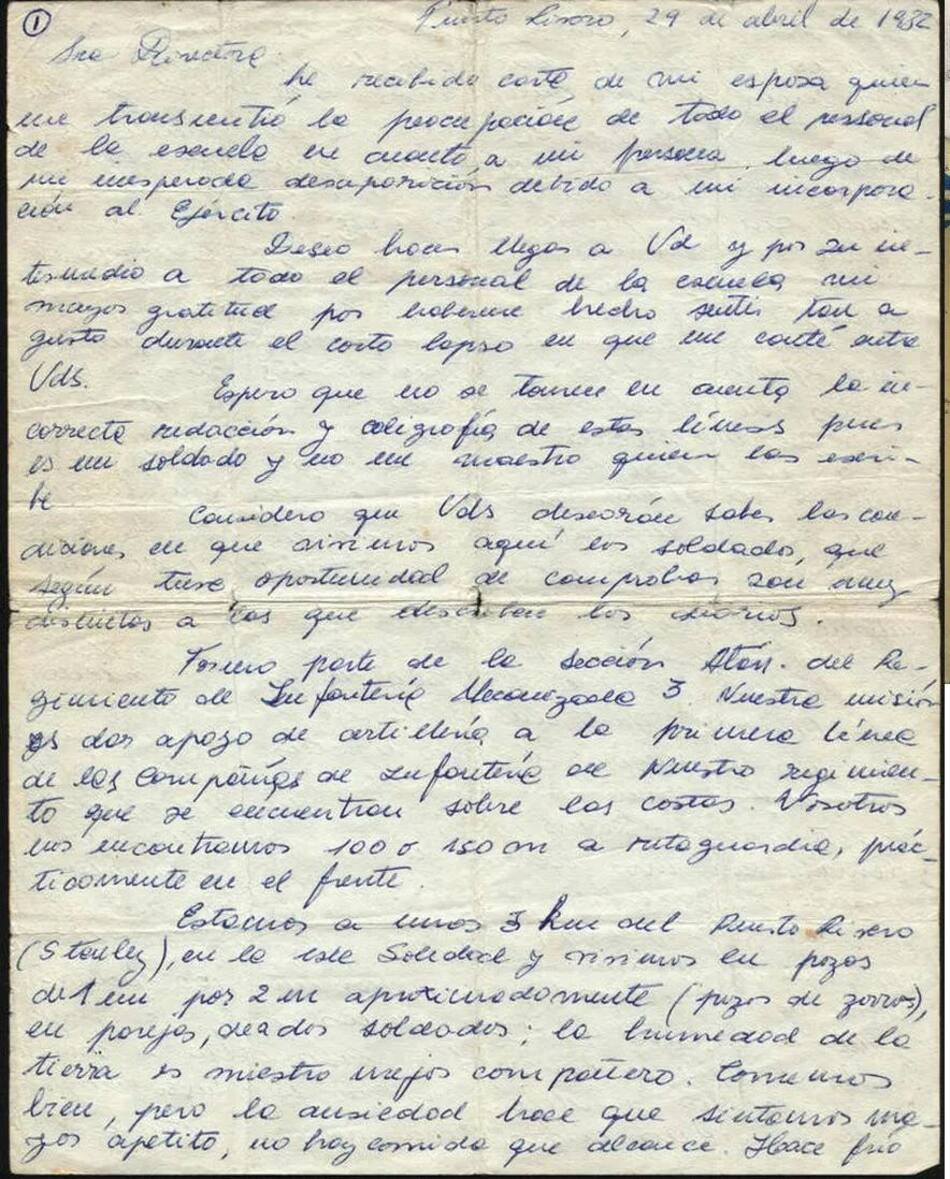 ①
Puerto Rivero, 29 de abril de 1982
Sra Directora:
he recibido carta de mi esposa quien
me transmitió la preocupación de todo el personal
de la escuela en cuanto a mi persona, luego de
mi inesperada desaparición debido a mi incorpora-
ción al Ejército.
Deseo hacer llegar a Vd y por su in-
termedio a todo el personal de la escuela mi
mayor gratitud por haberme hecho sentir tan a
gusto durante el corto lapso en que me conté entre
Vds.
Espero que no se tomen en cuenta la in-
correcta redacción y caligrafía de estas líneas pues
es un soldado y no un maestro quien las escri-
be
Considero que Vds desearán saber las con-
diciones en que vivimos aquí los soldados, que
según tuve oportunidad de comprobar son muy
distintas a las que describen los diarios.
Formo parte de la sección del Re-
gimiento de Infantería Mecanizada 3. Nuestra misión
es dar apoyo de artillería a la primera línea
de las Compañías de Infantería de Nuestro regimien-
to que se encuentran sobre las costas. Nosotros
nos encontramos 100 o 150 m a retaguardia, prác-
ticamente en el frente.
Estamos a unos 3 km del Puerto Rivero
(Stanley), en la isla Soledad y vivimos en pozos
de 1 m por 2 m aproximadamente (pozos de zorros),
en parejas, de a dos soldados; la humedad de la
tierra es nuestro mejor compañero. Comemos
bien, pero la ansiedad hace que sintamos ma-
yor apetito, no hay comida que alcance. Hace frío